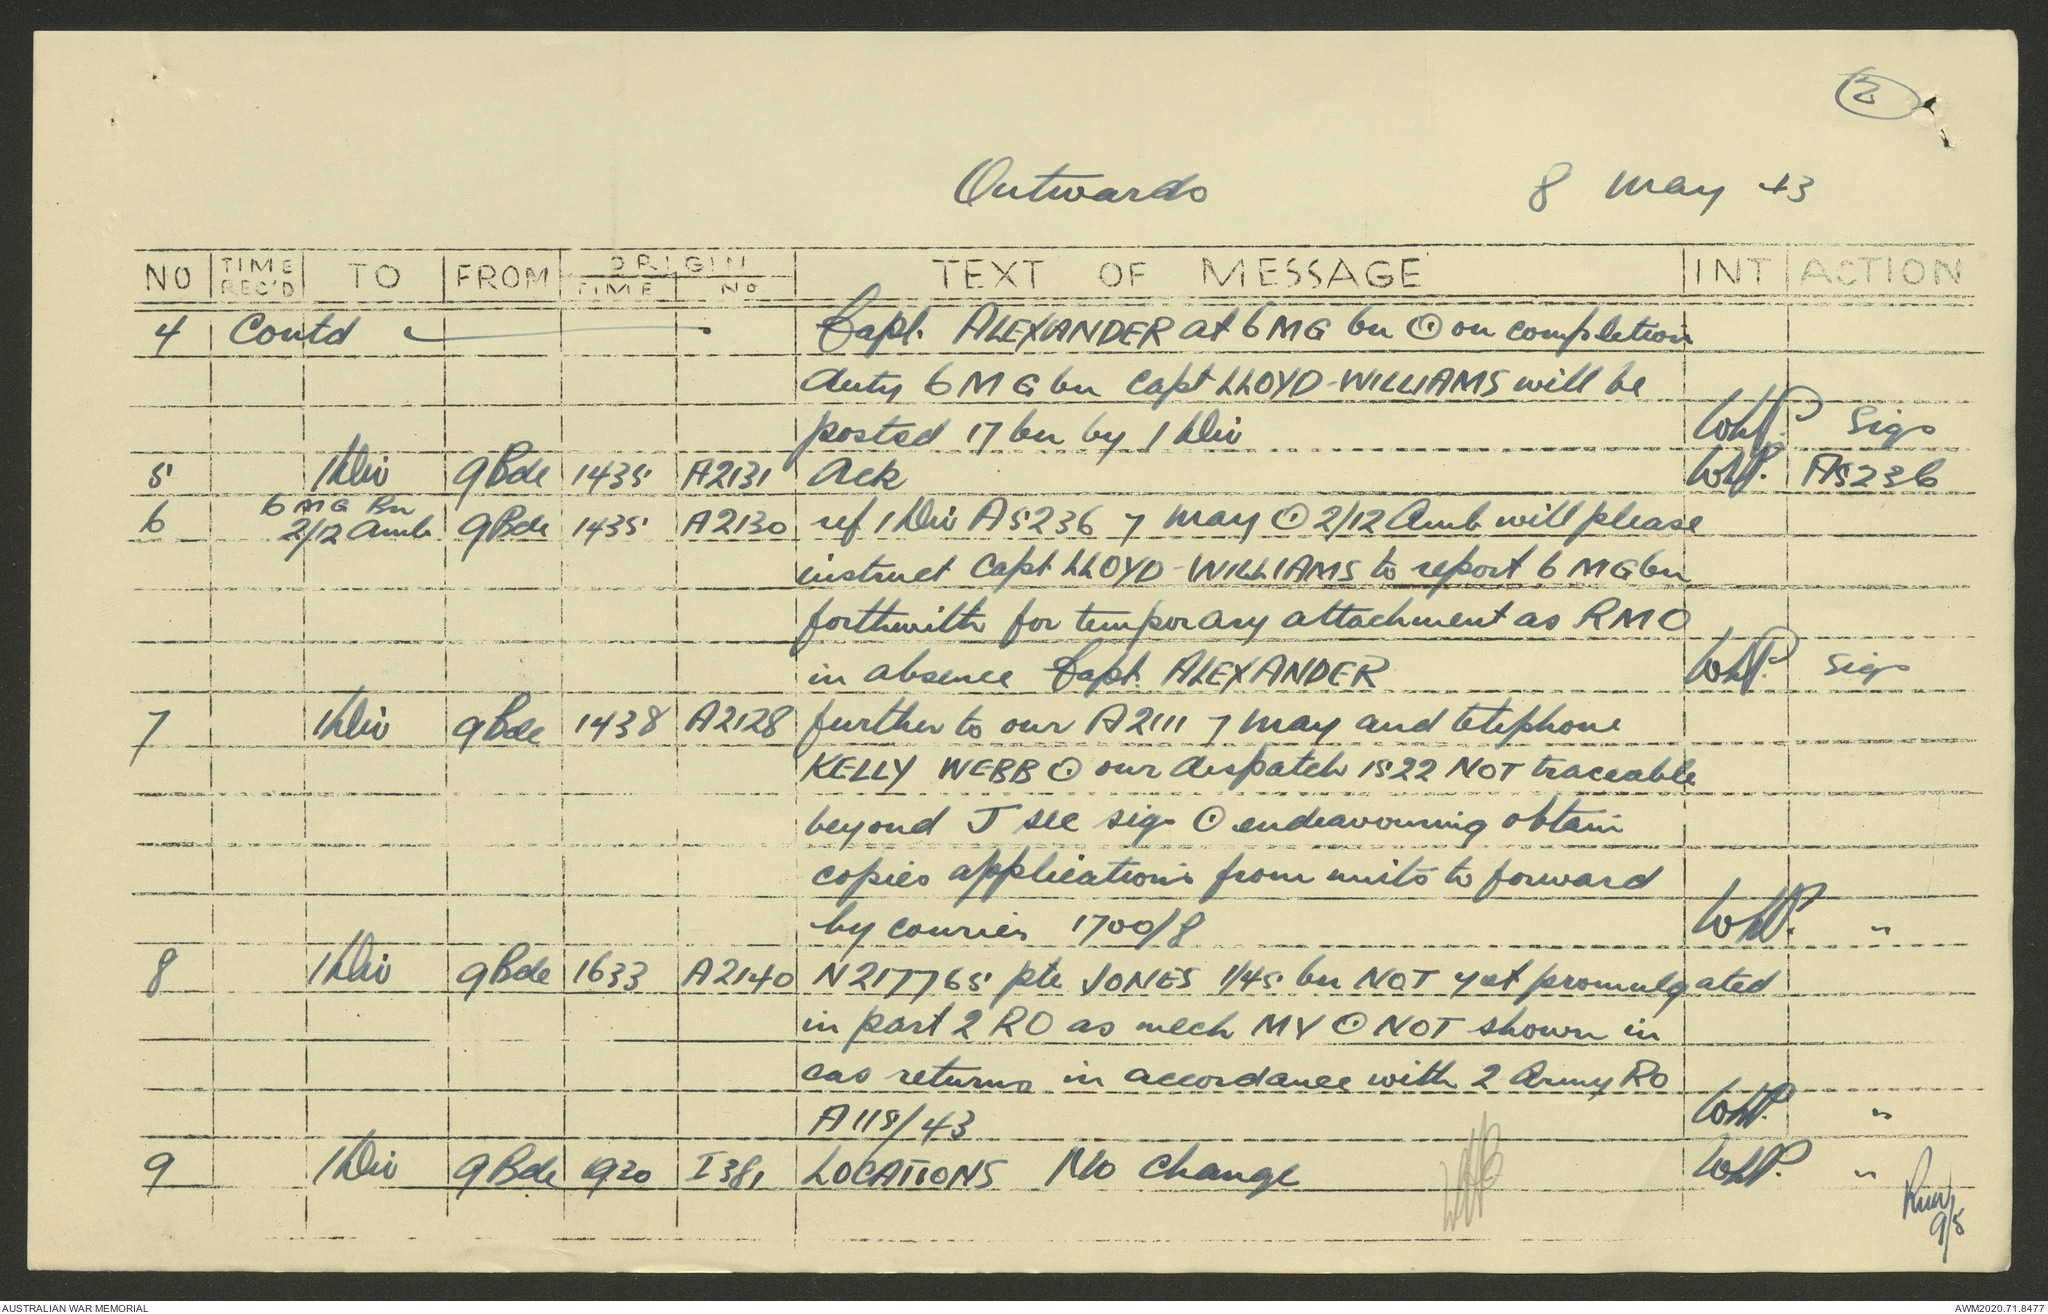 2
Outwards 8 May 43
NO TIME REC'D TO FROM ORIGIN TIME NO TEXT OF MESSAGE INT ACTION
4 Contd Capt. ALEXANDER at 6 MG bn ⊙ on completion
duty 6 MG bn Capt LLOYD-WILLIAMS will be
posted 17 bn by 1 Div WHP. Sigs
5 1 Div 9 Bde 1435 A2131 Ack WHP. A5236
6 6 MG Bn
2/12 Amb 9 Bde 1435 A2130 ref 1 Div A5236 7 May ⊙ 2/12 Amb will please
instruct Capt LLOYD-WILLIAMS to report 6 MG bn
forthwith for temporary attachment as RMO
in absence Capt. ALEXANDER WHP. Sigs
7 1 Div 9 Bde 1438 A2128 further to our A2111 7 May and telephone
KELLY WEBB ⊙ our despatch 1522 NOT traceable
beyond J sec sigs ⊙ endeavouring obtain
copies applications from units to forward
by courier 1700/8 WHP. "
8 1 Div 9 Bde 1633 A2140 N217765 pte JONES 1/45 bn NOT yet promulgated
in part 2 RO as mech MV ⊙ NOT shown in
cas returns in accordance with 2 Army RO
A115/43 WHP. "
9 1 Div 9 Bde 1920 I381 LOCATIONS No Change WHP. "
9/5
AUSTRALIAN WAR MEMORIAL AWM2020.71.8477